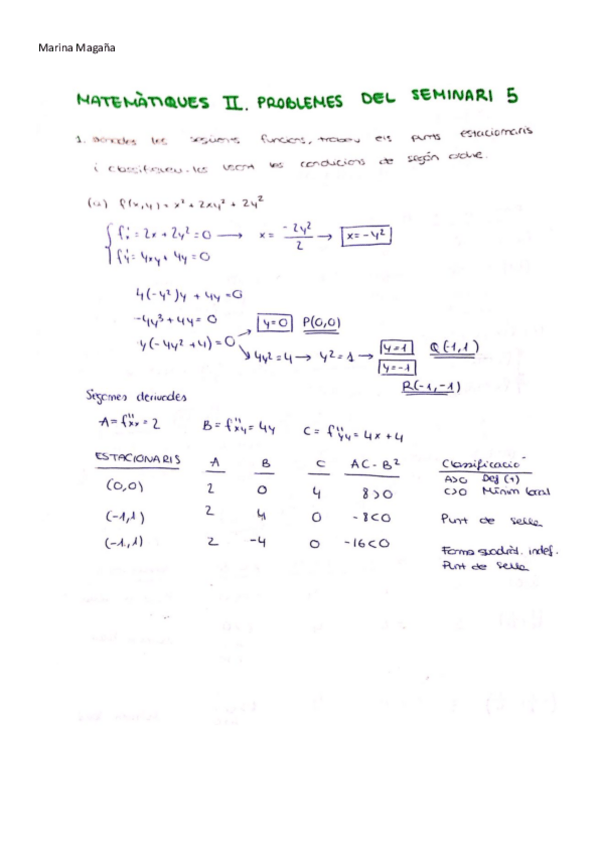 Marina Magaña
MATEMÀTIQUES II. PROBLEMES DEL SEMINARI 5
1. Donades les següents funcions, trobeu els punts estacionaris
i classifiqueu-les usant les condicions de segon ordre.
(a) f(x,y) = x² + 2xy² + 2y²
f'x = 2x + 2y² = 0 → x = -2y²/2 → x = -y²
f'y = 4xy + 4y = 0
4(-y²)y + 4y = 0
-4y³ + 4y = 0
y(-4y² + 4) = 0
y=0 P(0,0)
4y² = 4 → y² = 1 → y=1 Q(-1,1)
y=-1
R(-1,-1)
Segones derivades
A = f''xx = 2 B = f''xy = 4y C = f''yy = 4x + 4
ESTACIONARIS A B C AC - B² Classificació
(0,0) 2 0 4 8>0 A>0 Def (+)
C>0 Mínim local
(-1,1) 2 4 0 -8<0 Punt de sella
(-1,1) 2 -4 0 -16<0 Forma quadràt. indef.
Punt de sella